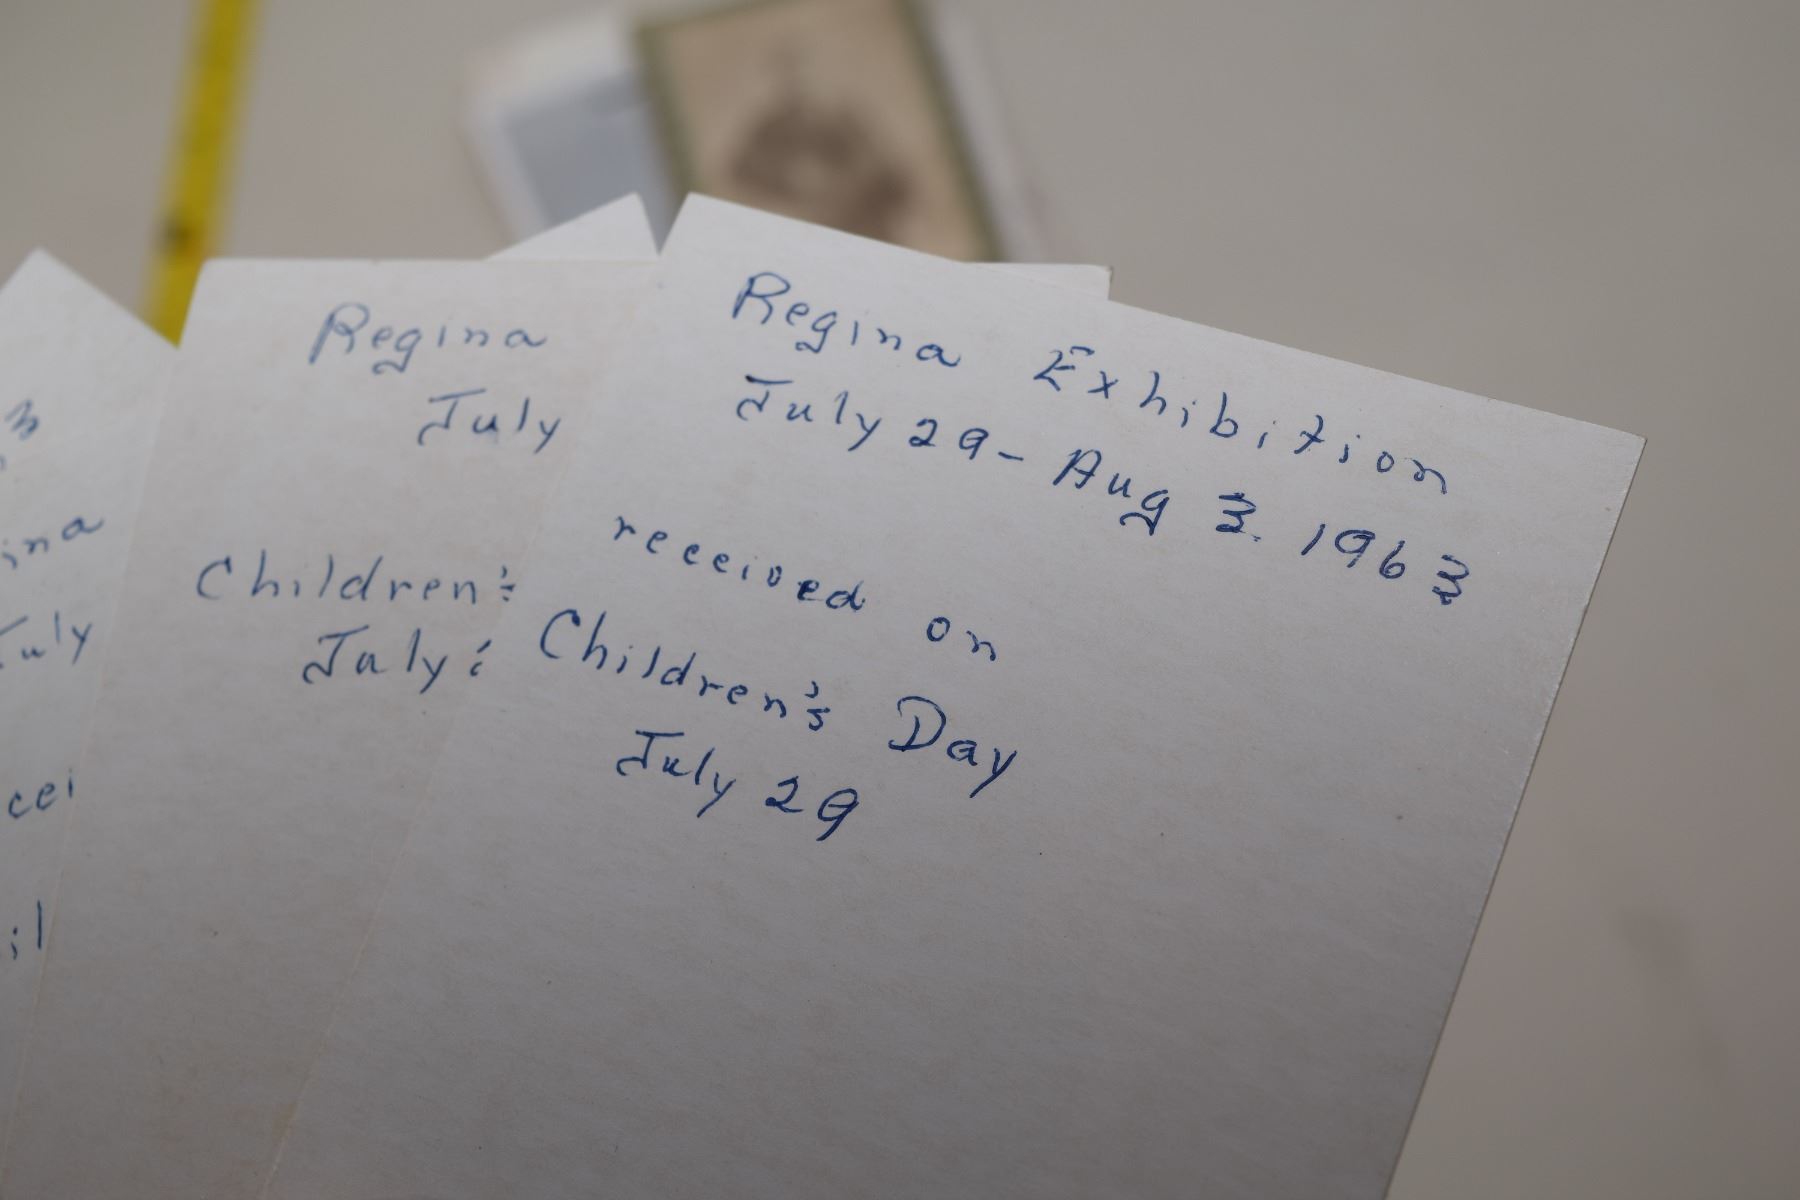 Regina Exhibition
July 29 - Aug 3. 1963
received on
Children's Day
July 29
Regina
July
Children's
July
July